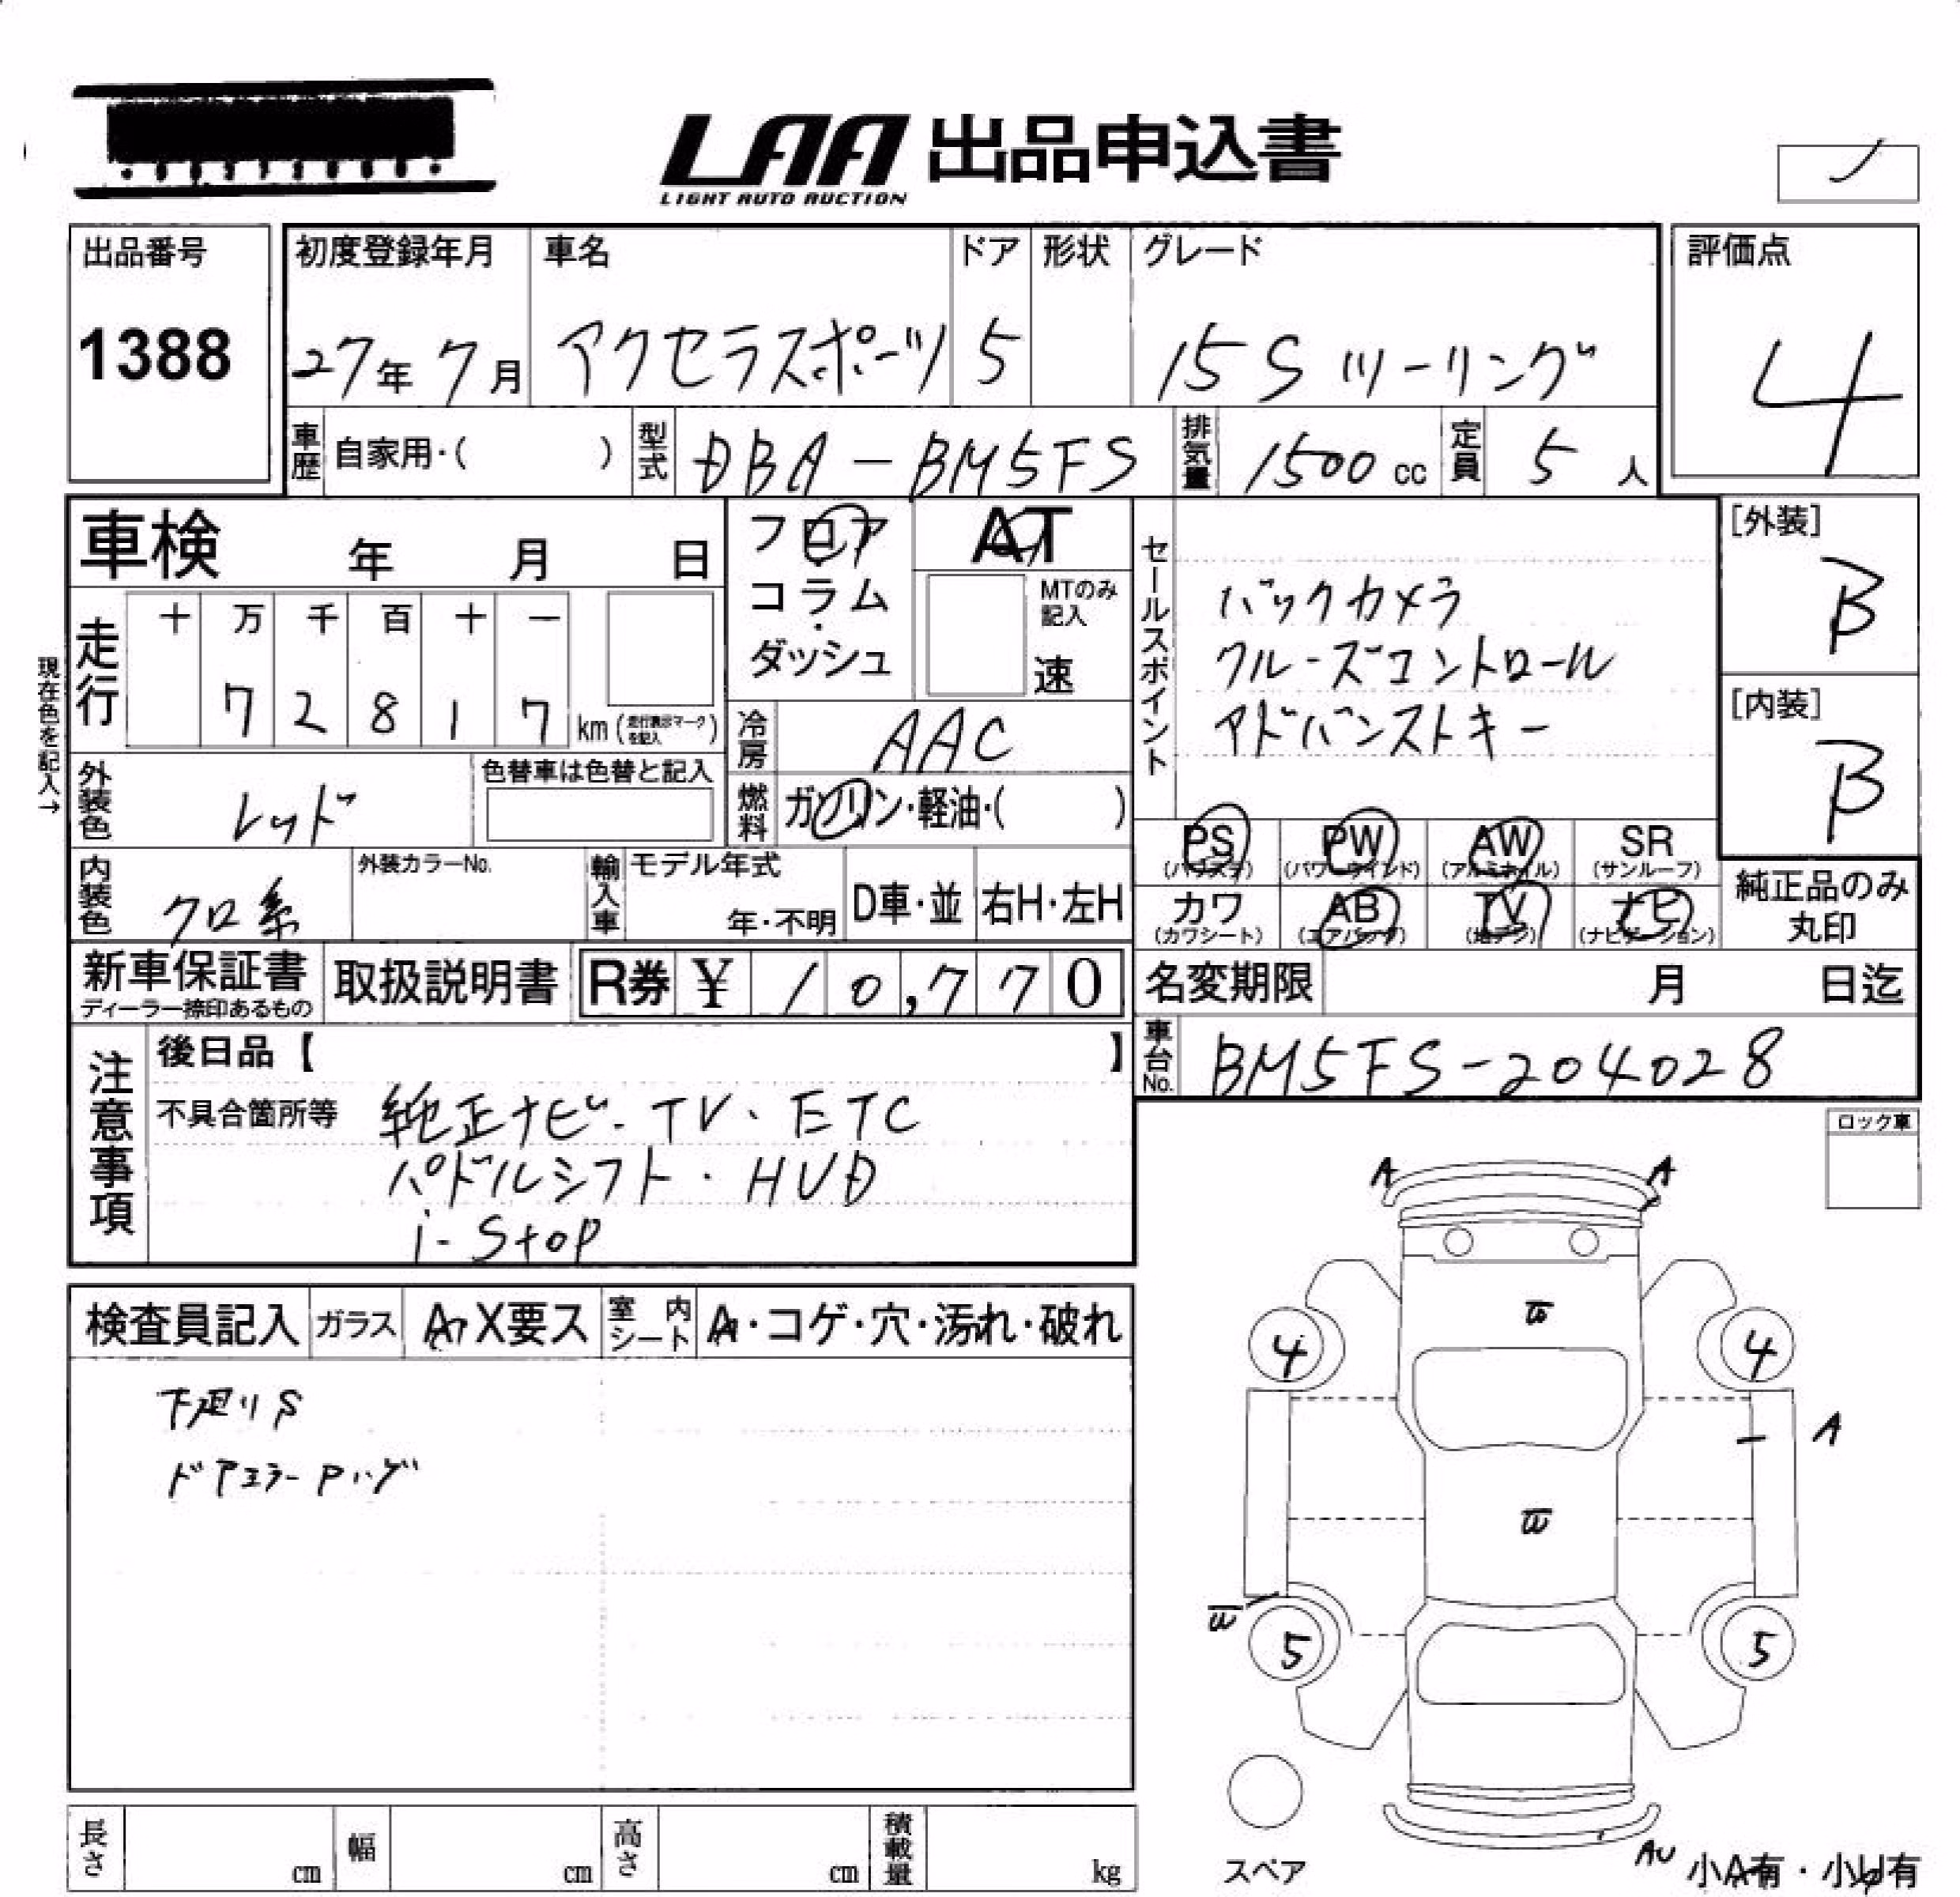 LAA 出品申込書
LIGHT AUTO AUCTION
出品番号
1388
初度登録年月
27年 7月
車名
アクセラスポーツ
ドア
5
形状
グレード
15S ツーリング
評価点
4
車歴 自家用・( )
型式 DBA-BM5FS
排気量 1500 cc
定員 5 人
車検 年 月 日
フロア
コラム
・
ダッシュ
AT
MTのみ
記入
速
セールスポイント
バックカメラ
クルーズコントロール
アドバンストキー
[外装]
B
[内装]
B
現在色を記入→
走行
十 万 千 百 十 一
7 2 8 1 7 km (走行表示マークを記入)
冷房 AAC
外装色 レッド
色替車は色替と記入
燃料 ガソリン・軽油・( )
PS (パワステ)
PW (パワーウインド)
AW (アルミホイル)
SR (サンルーフ)
内装色 クロ系
外装カラーNo.
輸入車
モデル年式
年・不明
D車・並
右H・左H
カワ (カワシート)
AB (エアバッグ)
TV (地デジ)
ナビ (ナビゲーション)
純正品のみ
丸印
新車保証書
ディーラー捺印あるもの
取扱説明書
R券 ¥ 10,770
名変期限 月 日迄
車台No. BM5FS-204028
注意事項
後日品【 】
不具合箇所等 純正ナビ・TV・ETC
パドルシフト・HUD
i-stop
ロック車
検査員記入
ガラス
A X要ス
室内シート
A・コゲ・穴・汚れ・破れ
下廻りS
ドアミラーPハゲ
A A
W
4 4
A
W
W
5 5
スペア
AU
小A有・小U有
長さ cm
幅 cm
高さ cm
積載量 kg